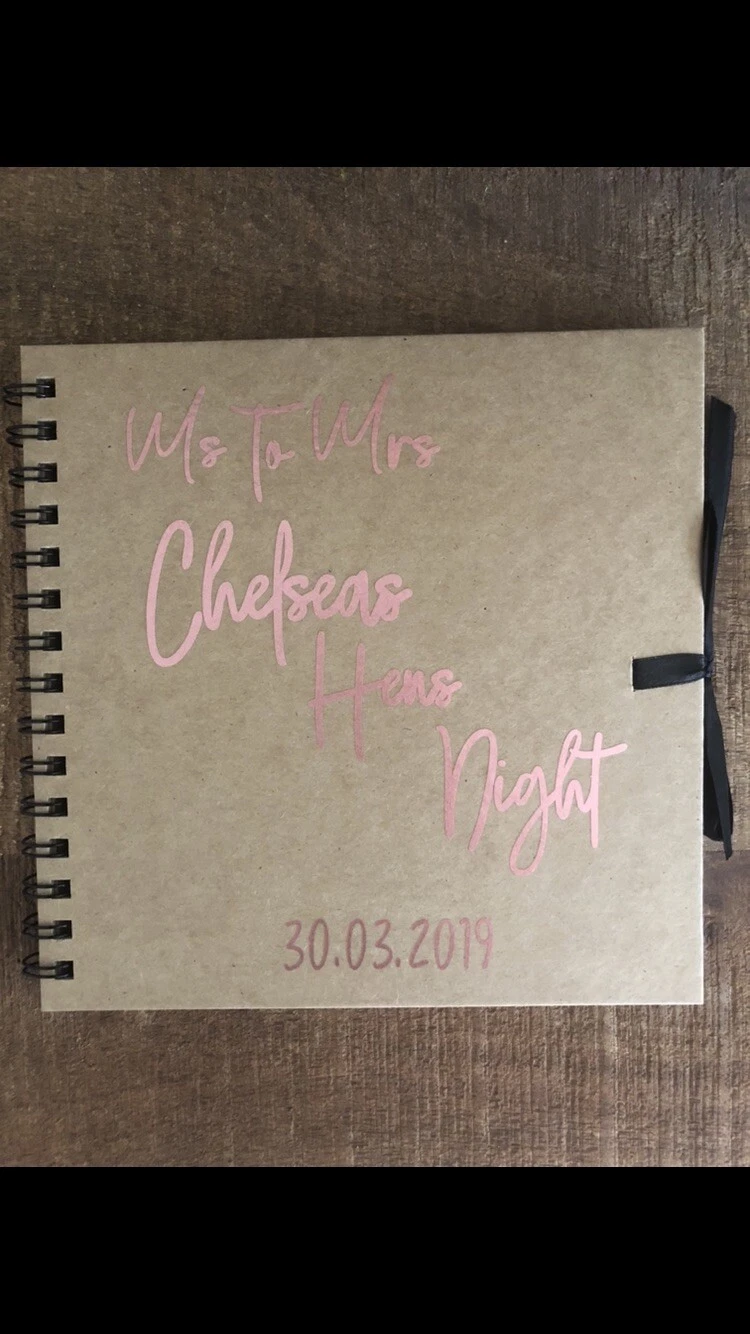 Ms To Mrs
Chelseas
Hens
Night
30.03.2019